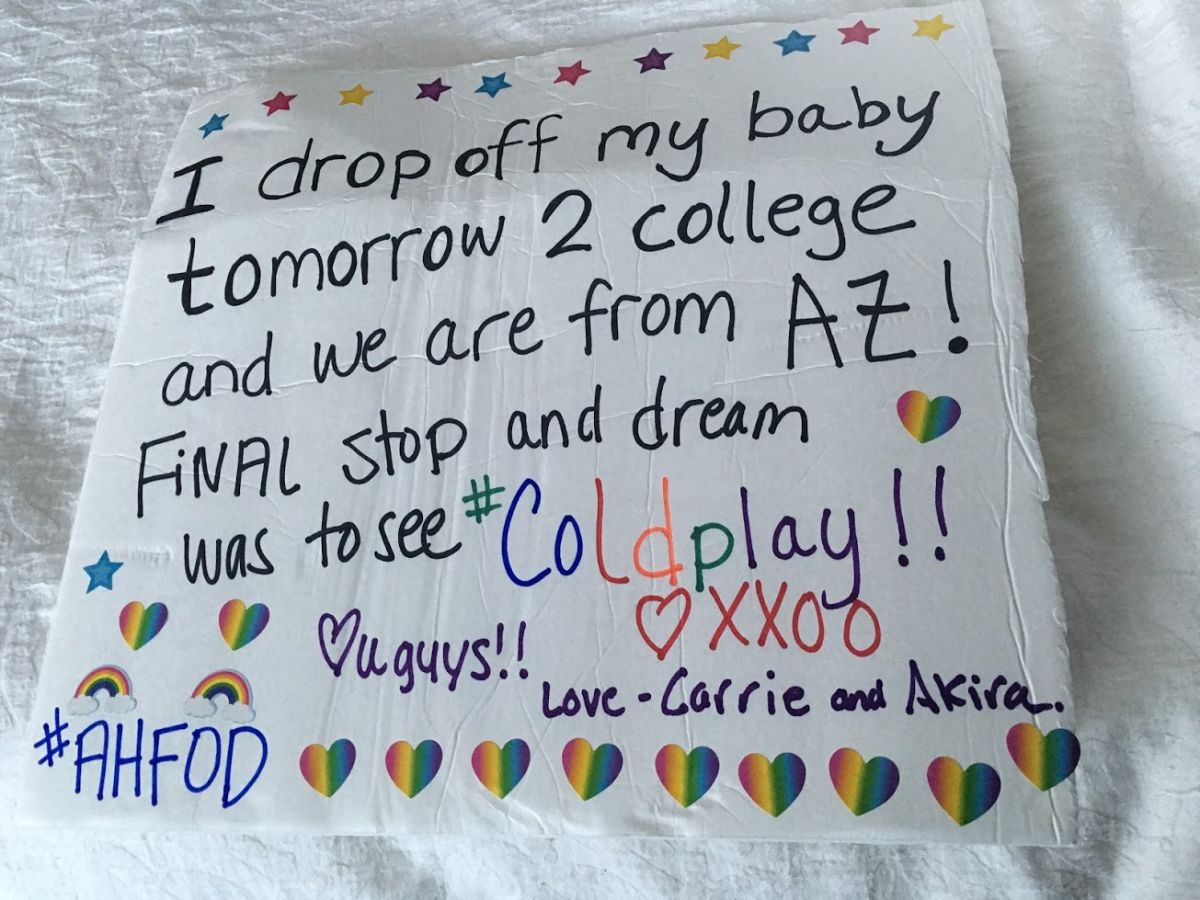 I drop off my baby
tomorrow 2 college
and we are from AZ!
FiNAL stop and dream
was to see #Coldplay!!
♡XXOO
♡u guys!!
Love - Carrie and Akira.
#AHFOD